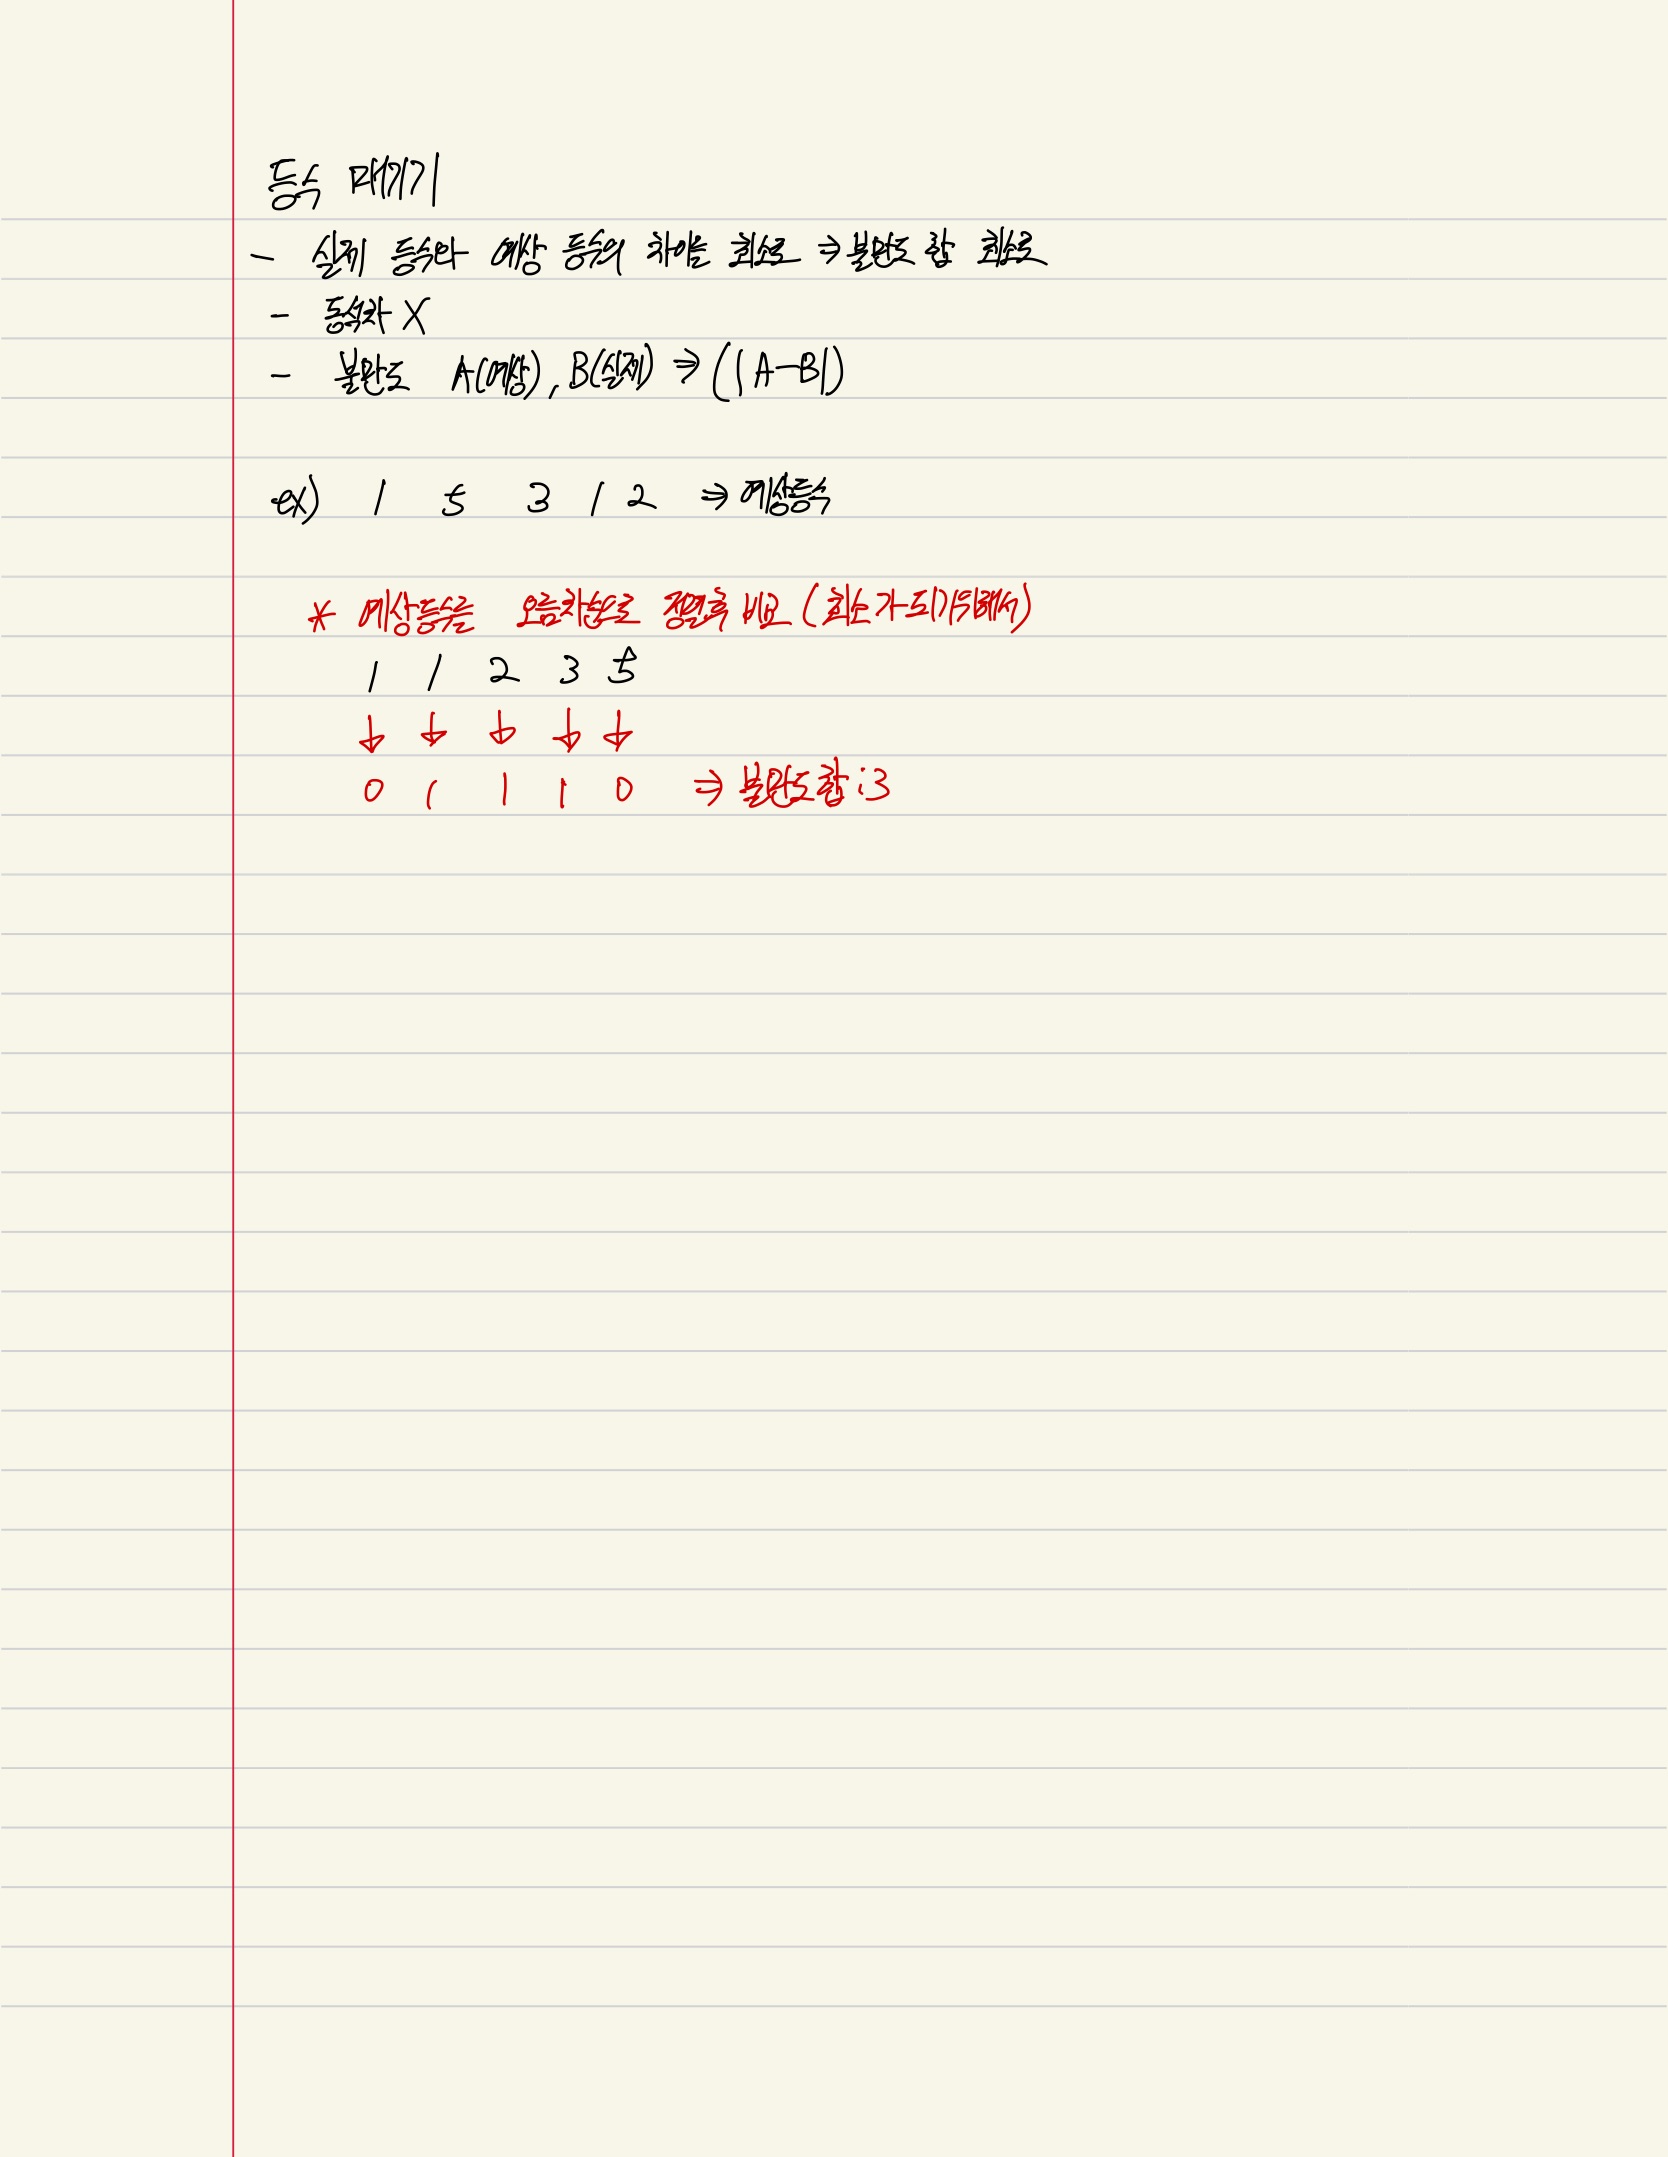 등수 매기기
- 실제 등수와 예상 등수의 차이를 최소로 ⇒ 불만도 합 최소로
- 동석차 X
- 불만도 A(예상), B(실제) ⇒ (|A-B|)
ex) 1 5 3 1 2 ⇒ 예상등수
* 예상등수를 오름차순으로 정렬후 비교 (최소가 되기위해서)
1 1 2 3 5
↓ ↓ ↓ ↓ ↓
0 1 1 1 0 ⇒ 불만도 합 : 3